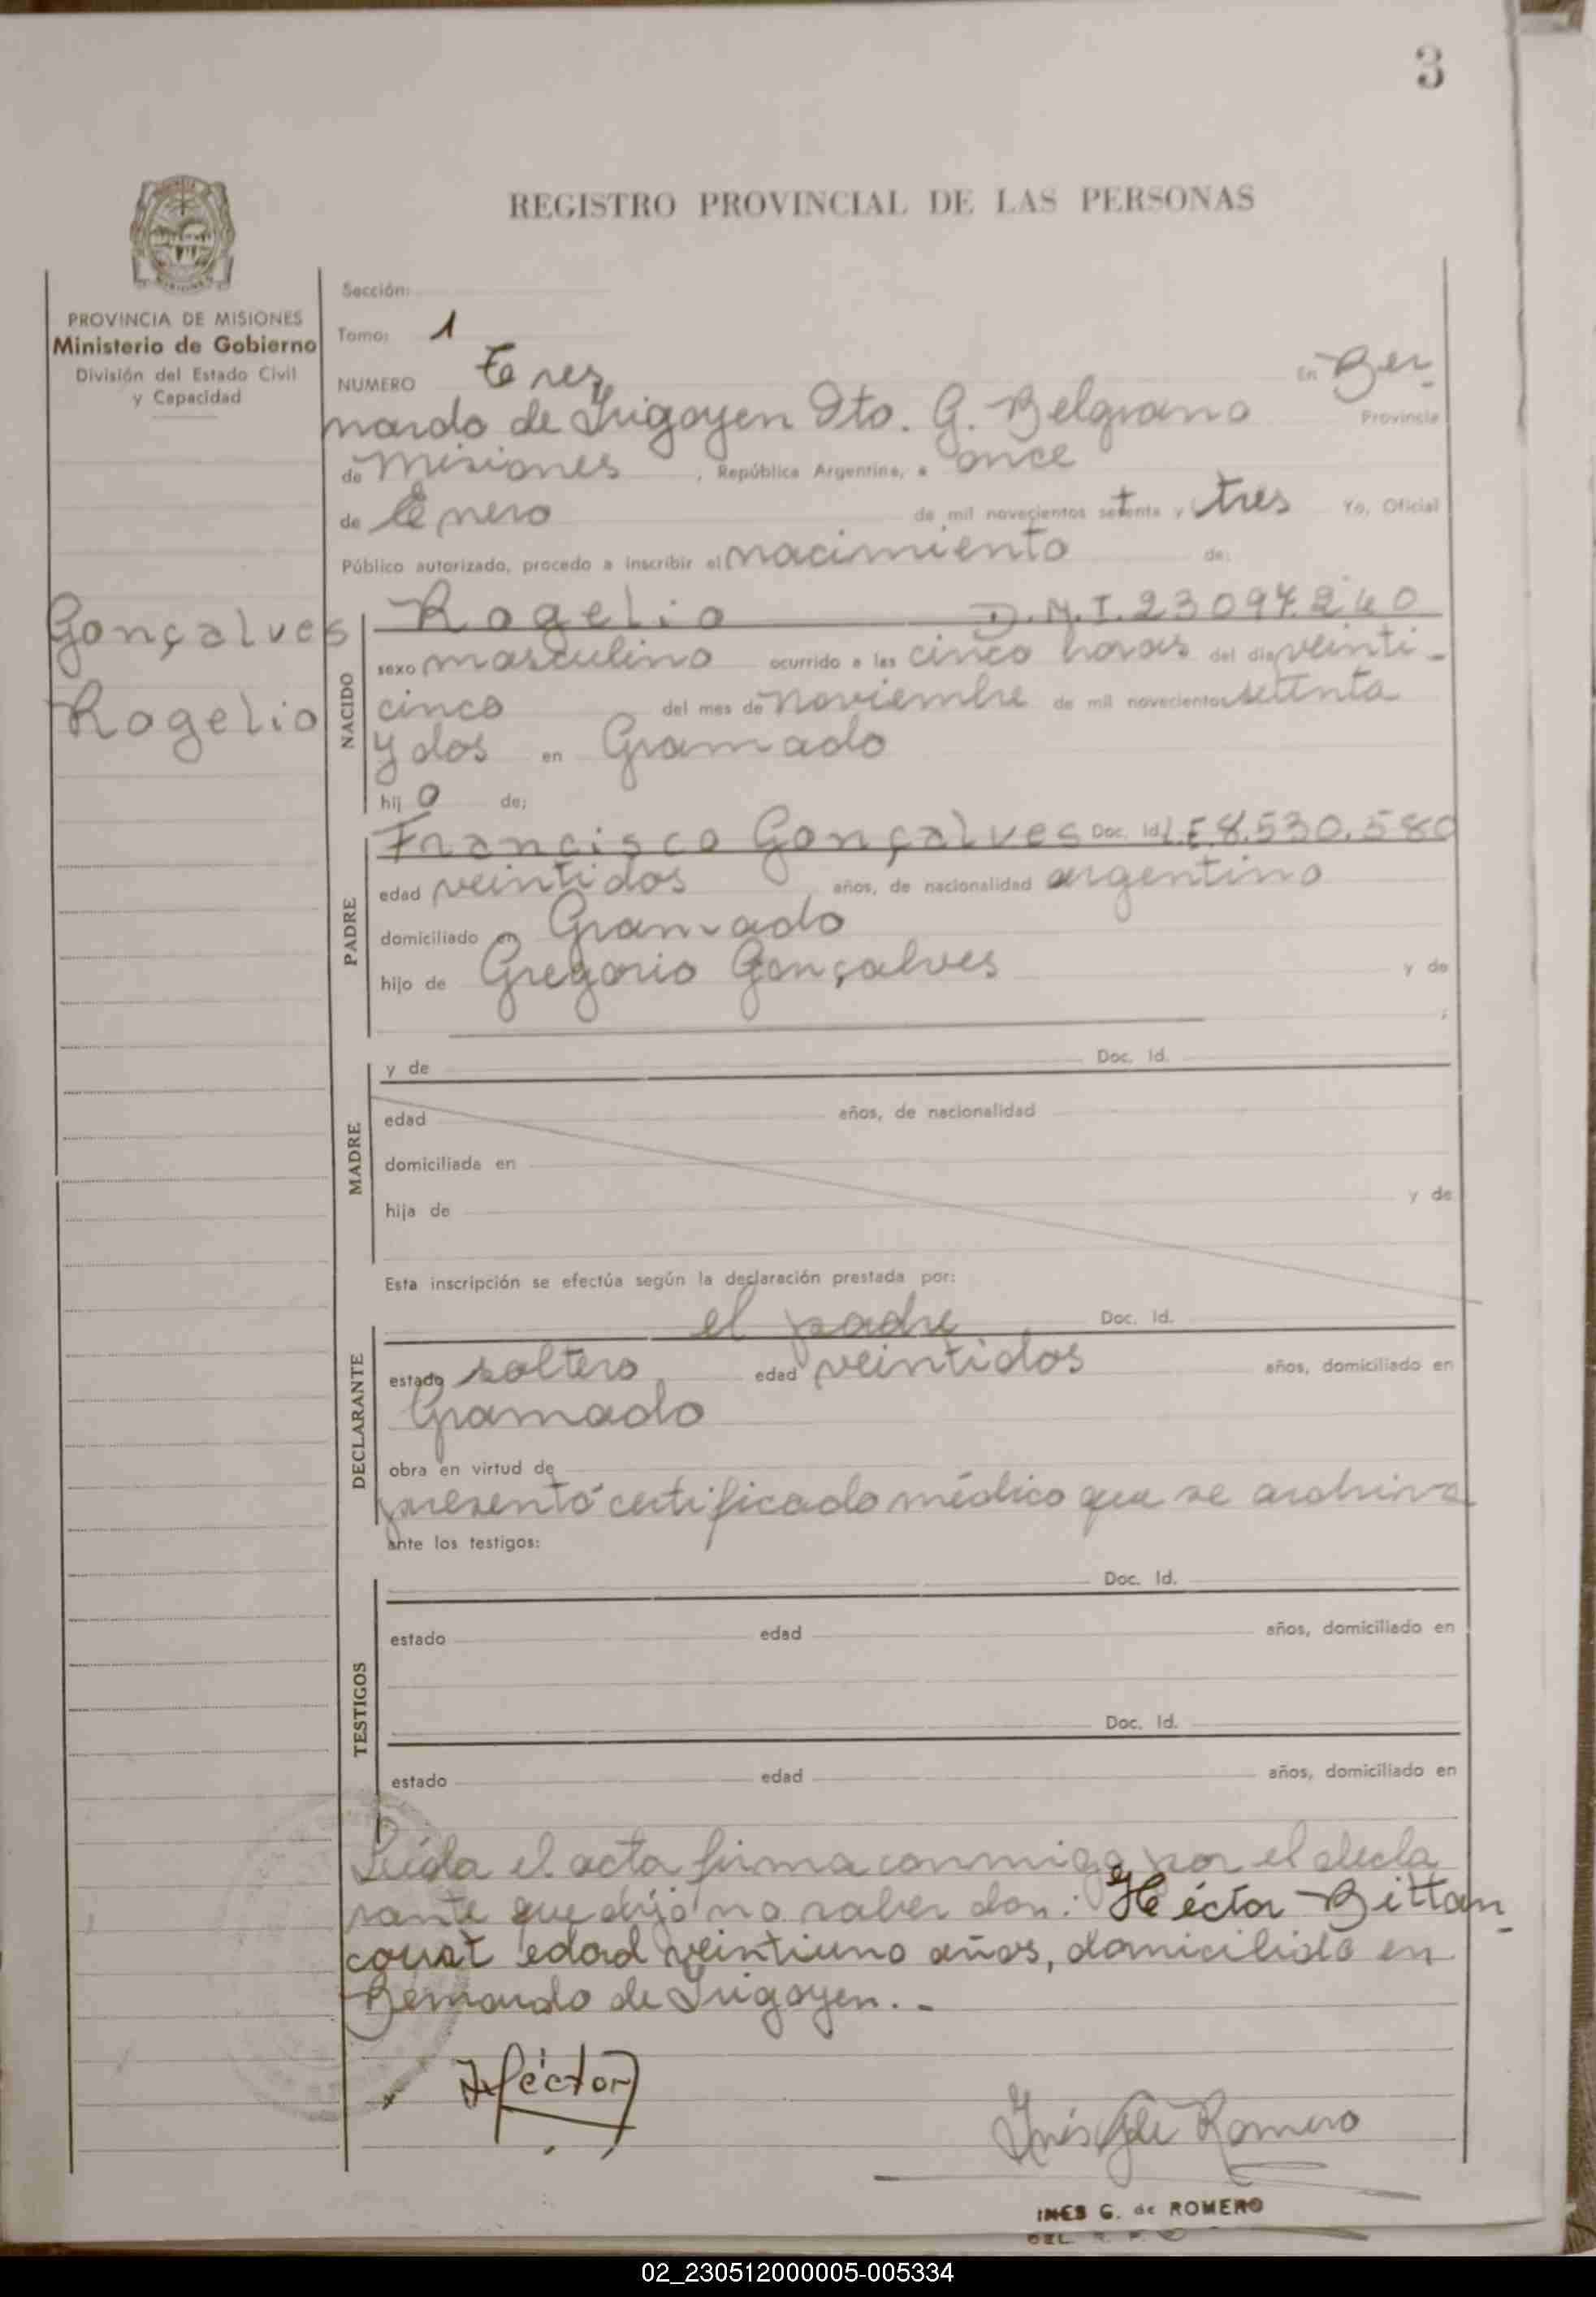 3
REGISTRO PROVINCIAL DE LAS PERSONAS
PROVINCIA DE MISIONES
Ministerio de Gobierno
División del Estado Civil
y Capacidad
Sección:
Tomo: 1
NUMERO tres En Ber-
nardo de Irigoyen Dto. G. Belgrano Provincia
de Misiones, República Argentina, a once
de Enero de mil novecientos setenta y tres Yo, Oficial
Público autorizado, procedo a inscribir el nacimiento de:
Gonçalves
Rogelio
NACIDO
Rogelio D.N.I. 23097240
sexo masculino ocurrido a las cinco horas del día veinti-
cinco del mes de noviembre de mil novecientos setenta
y dos en Gramado
hijo de:
PADRE
Francisco Gonçalves Doc. Id. L.E 8.530.580
edad veintidos años, de nacionalidad argentino
domiciliado en Gramado
hijo de Gregorio Gonçalves y de
;
MADRE
y de Doc. Id.
edad años, de nacionalidad
domiciliada en
hija de y de
Esta inscripción se efectúa según la declaración prestada por:
DECLARANTE
el padre Doc. Id.
estado soltero edad veintidos años, domiciliado en
Gramado
obra en virtud de
presentó certificado médico que se archiva
ante los testigos:
TESTIGOS
Doc. Id.
estado edad años, domiciliado en
Doc. Id.
estado edad años, domiciliado en
Leída el acta firma conmigo por el decla
rante que dijo no saber don: Héctor Bittan-
court edad veintiuno años, domicilido en
Bernardo de Irigoyen.-
Héctor
Inés Romero
INES G. de ROMERO
DEL. R. P.
02_230512000005-005334